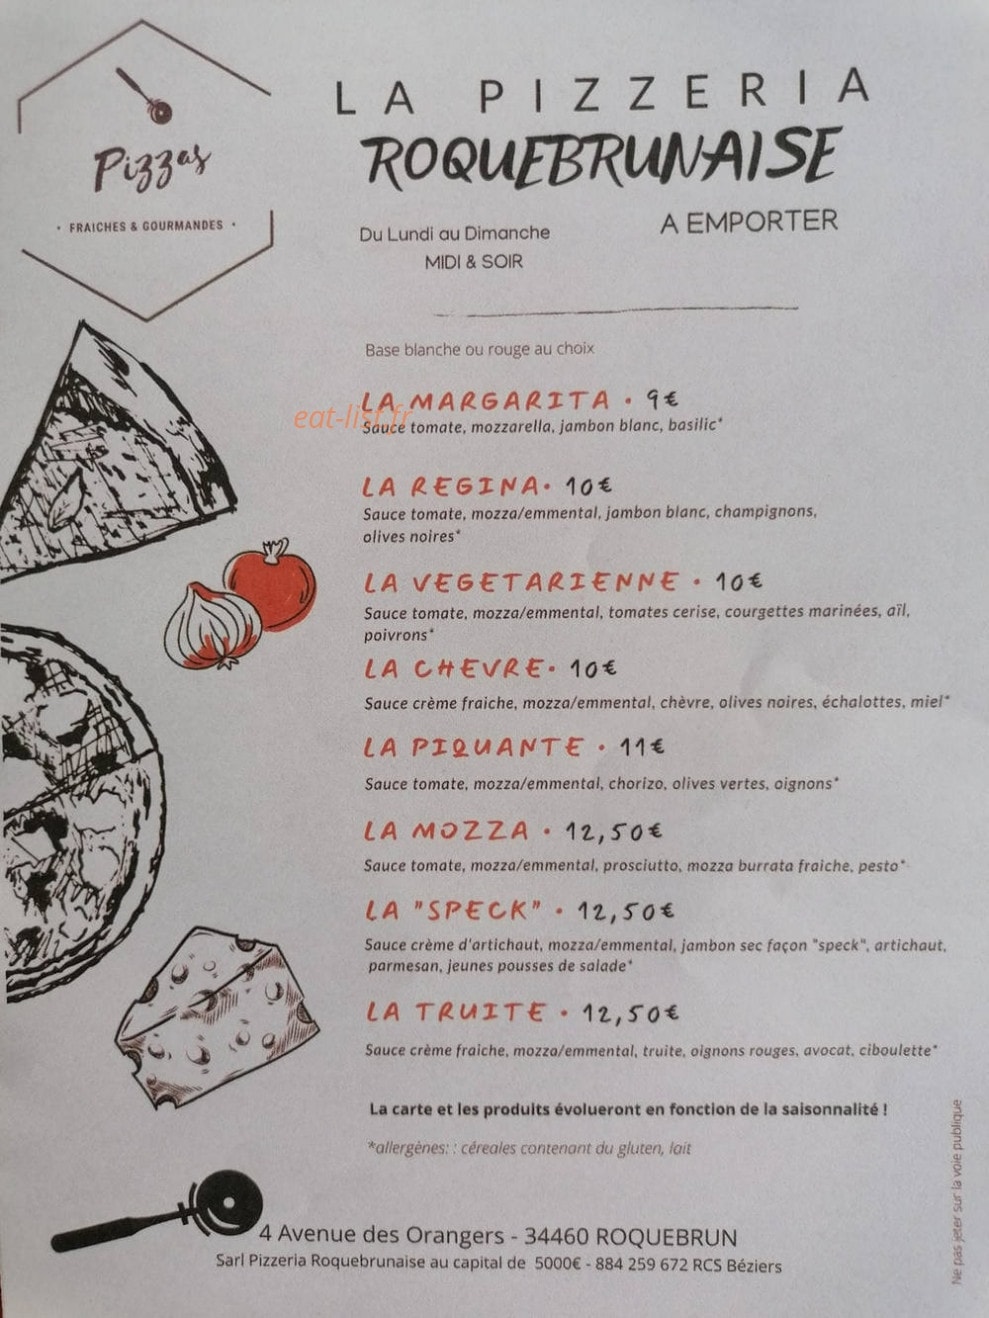 Pizzas
• FRAICHES & GOURMANDES •
LA PIZZERIA
ROQUEBRUNAISE
Du Lundi au Dimanche
MIDI & SOIR
A EMPORTER
Base blanche ou rouge au choix
LA MARGARITA • 9€
eat-list.fr
Sauce tomate, mozzarella, jambon blanc, basilic*
LA REGINA • 10€
Sauce tomate, mozza/emmental, jambon blanc, champignons,
olives noires*
LA VEGETARIENNE • 10€
Sauce tomate, mozza/emmental, tomates cerise, courgettes marinées, aïl,
poivrons*
LA CHEVRE • 10€
Sauce crème fraiche, mozza/emmental, chèvre, olives noires, échalottes, miel*
LA PIQUANTE • 11€
Sauce tomate, mozza/emmental, chorizo, olives vertes, oignons*
LA MOZZA • 12,50€
Sauce tomate, mozza/emmental, prosciutto, mozza burrata fraiche, pesto*
LA "SPECK" • 12,50€
Sauce crème d'artichaut, mozza/emmental, jambon sec façon "speck", artichaut,
parmesan, jeunes pousses de salade*
LA TRUITE • 12,50€
Sauce crème fraiche, mozza/emmental, truite, oignons rouges, avocat, ciboulette*
La carte et les produits évolueront en fonction de la saisonnalité !
*allergènes: : céreales contenant du gluten, lait
4 Avenue des Orangers - 34460 ROQUEBRUN
Sarl Pizzeria Roquebrunaise au capital de 5000€ - 884 259 672 RCS Béziers
Ne pas jeter sur la voie publique